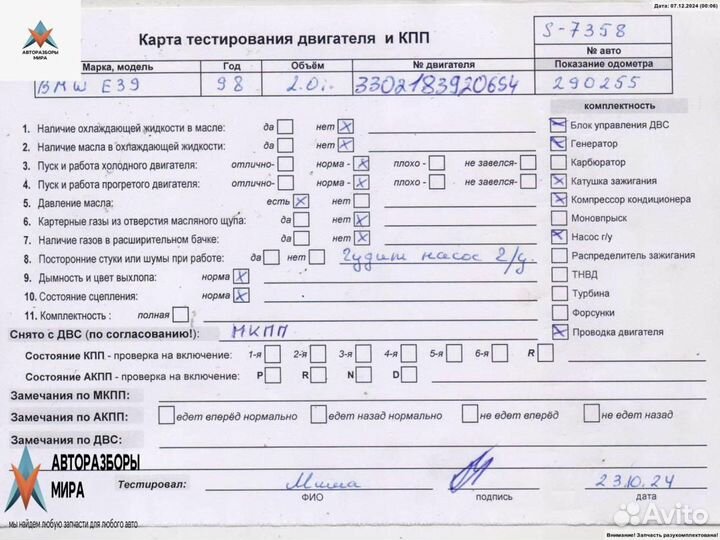 Дата: 07.12.2024 (00:06)
АВТОРАЗБОРЫ
МИРА
Карта тестирования двигателя и КПП
S-7358
№ авто
Марка, модель Год Объём № двигателя Показание одометра
BMW E39 98 2.0i. 3302183920654 290255
комплектность
1. Наличие охлаждающей жидкости в масле: да нет
2. Наличие масла в охлаждающей жидкости: да нет
3. Пуск и работа холодного двигателя: отлично- норма - плохо - не завелся-
4. Пуск и работа прогретого двигателя: отлично- норма - плохо - не завелся-
5. Давление масла: есть нет
6. Картерные газы из отверстия масляного щупа: да нет
7. Наличие газов в расширительном бачке: да нет
8. Посторонние стуки или шумы при работе: да нет Гудит насос г/у.
9. Дымность и цвет выхлопа: норма
10. Состояние сцепления: норма
11. Комплектность : полная
Блок управления ДВС
Генератор
Карбюратор
Катушка зажигания
Компрессор кондиционера
Моновпрыск
Насос г/у
Распределитель зажигания
ТНВД
Турбина
Форсунки
Проводка двигателя
Снято с ДВС (по согласованию!): МКПП
Состояние КПП - проверка на включение: 1-я 2-я 3-я 4-я 5-я 6-я R
Состояние АКПП - проверка на включение: P R N D
Замечания по МКПП:
Замечания по АКПП: едет вперёд нормально едет назад нормально не едет вперёд не едет назад
Замечания по ДВС:
АВТОРАЗБОРЫ
МИРА
мы найдем любую запчасти для любого авто
Тестировал: Миша 23.10.24
ФИО подпись дата
Avito
Внимание! Запчасть разукомплектована!